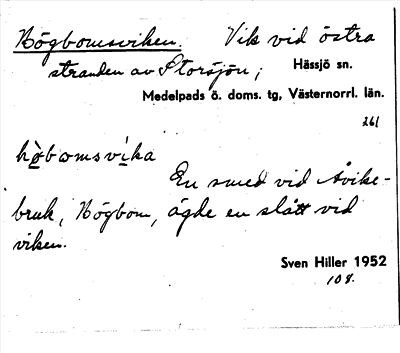 Högbomsviken. Vik vid östra
stranden av Storsjön; Hässjö sn.
Medelpads ö. doms. tg, Västernorrl. län.
261
hȯ̀bomsvi̱ka
En smed vid Åvike-
bruk, Högbom, ägde en slått vid
viken.
Sven Hiller 1952
108.